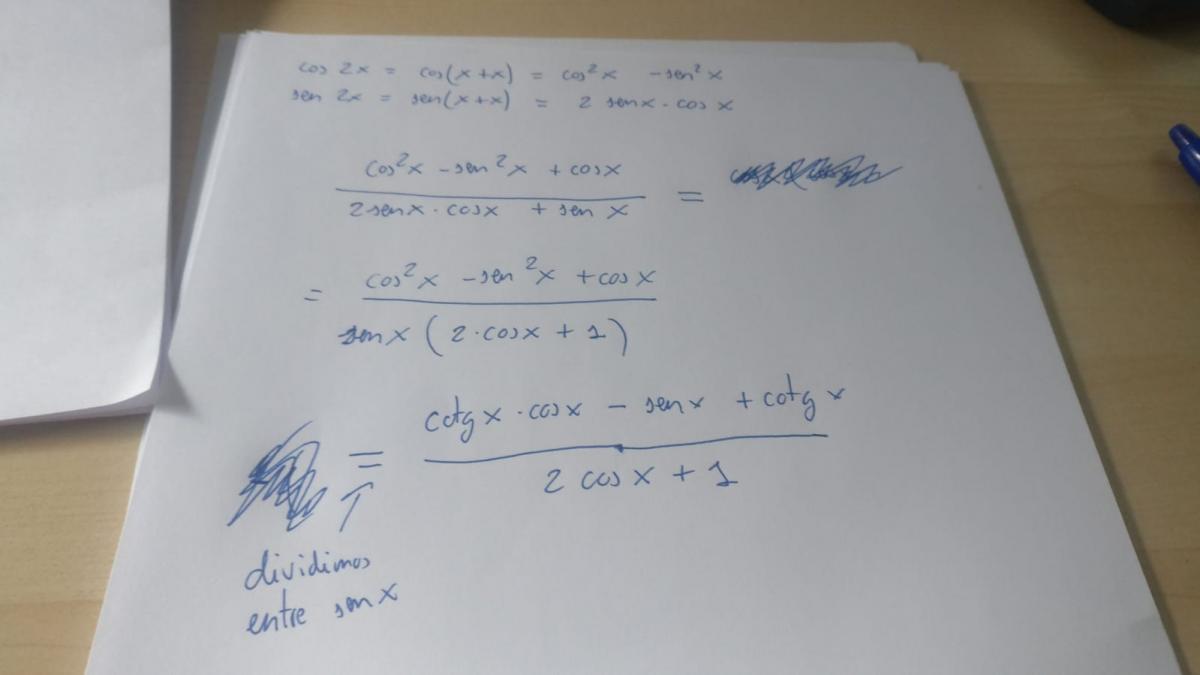 cos 2x = cos(x+x) = cos²x - sen²x
sen 2x = sen(x+x) = 2 senx · cos x
cos²x - sen²x + cosx
2senx · cosx + sen x
=
= cos²x - sen²x + cosx
senx (2·cosx + 1)
cotg x · cosx - senx + cotg x
=
2 cosx + 1
↑
dividimos
entre senx